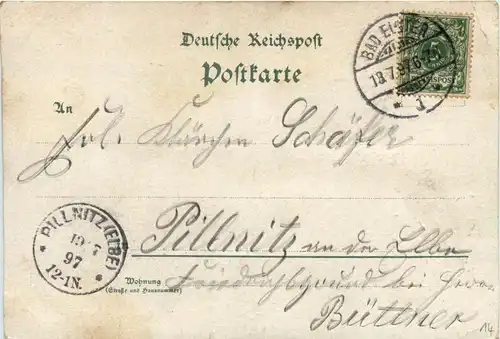 Deutsche Reichspost
Postkarte
BAD ELSTER
18.7.97. 6-7N.
* J *
An
Frl. Klärchen Schäfer
PILLNITZ (ELBE)
19 7
97
12-1N.
Pillnitz an der Elbe
Wohnung
(Straße und Hausnummer)
Friedrichsgrund bei Herrn
Büttner
14